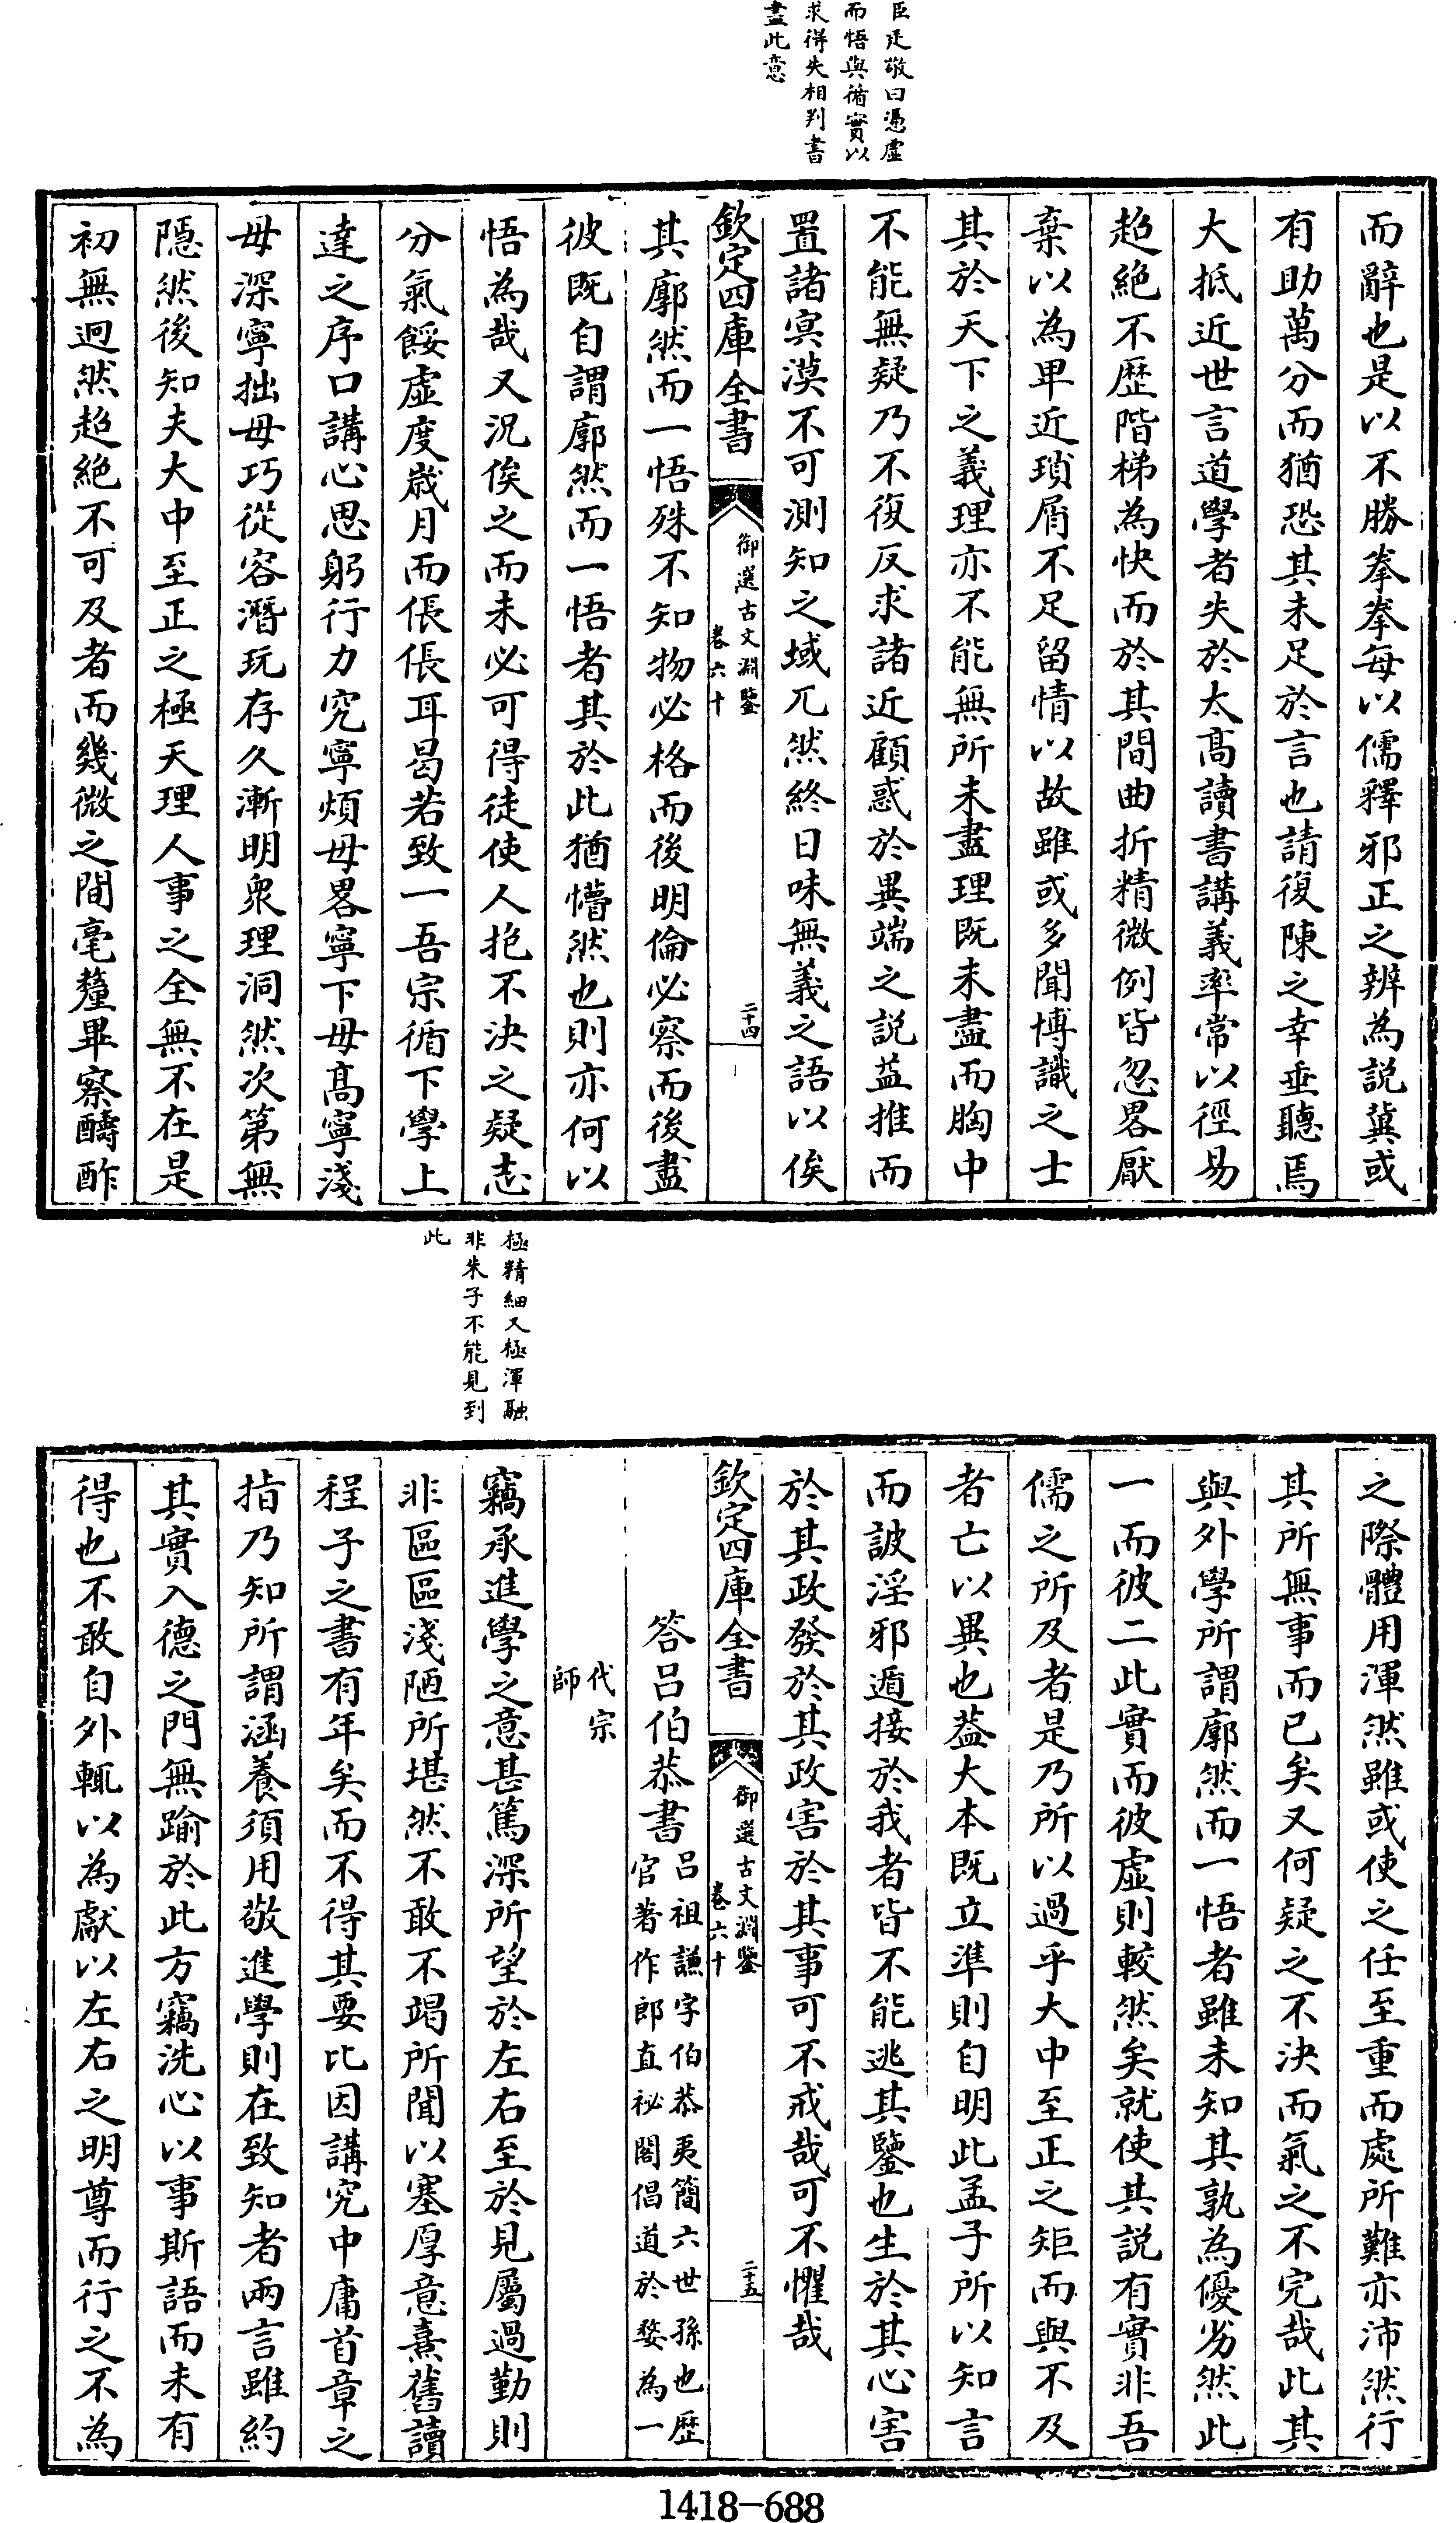 臣廷敬曰憑虛
而悟與循實以
求得失相判書
盡此意
而辭也是以不勝拳拳每以儒釋邪正之辨為説冀或
有助萬分而猶恐其未足於言也請復陳之幸垂聽焉
大抵近世言道學者失於太高讀書講義率常以徑易
超絶不歴階梯為快而於其間曲折精微例皆忽畧厭
棄以為卑近瑣屑不足留情以故雖或多聞博識之士
其於天下之義理亦不能無所未盡理既未盡而胸中
不能無疑乃不復反求諸近顧惑於異端之説益推而
置諸冥漠不可測知之域兀然終日味無義之語以俟
欽定四庫全書
御選古文淵鑒
卷六十
二十四
其廓然而一悟殊不知物必格而後明倫必察而後盡
彼既自謂廓然而一悟者其於此猶懵然也則亦何以
悟為哉又況俟之而未必可得徒使人抱不決之疑志
分氣餒虛度歳月而倀倀耳曷若致一吾宗循下學上
達之序口講心思躬行力究寧煩毋畧寧下毋高寧淺
毋深寧拙毋巧從容潛玩存久漸明衆理洞然次第無
隱然後知夫大中至正之極天理人事之全無不在是
初無迥然超絶不可及者而幾微之間毫釐畢察醻酢
極精細又極渾融
非朱子不能見到
此
之際體用渾然雖或使之任至重而處所難亦沛然行
其所無事而已矣又何疑之不決而氣之不完哉此其
與外學所謂廓然而一悟者雖未知其孰為優劣然此
一而彼二此實而彼虛則較然矣就使其説有實非吾
儒之所及者是乃所以過乎大中至正之矩而與不及
者亡以異也葢大本既立凖則自明此孟子所以知言
而詖淫邪遁接於我者皆不能逃其鑒也生於其心害
於其政發於其政害於其事可不戒哉可不懼哉
欽定四庫全書
御選古文淵鑒
卷六十
二十五
答吕伯恭書吕祖謙字伯恭夷簡六世孫也歴
官著作郎直祕閣倡道於婺為一
代宗
師
竊承進學之意甚篤深所望於左右至於見屬過勤則
非區區淺陋所堪然不敢不竭所聞以塞厚意熹舊讀
程子之書有年矣而不得其要比因講究中庸首章之
指乃知所謂涵養須用敬進學則在致知者兩言雖約
其實入德之門無踰於此方竊洗心以事斯語而未有
得也不敢自外輒以為獻以左右之明尊而行之不為
1418-688